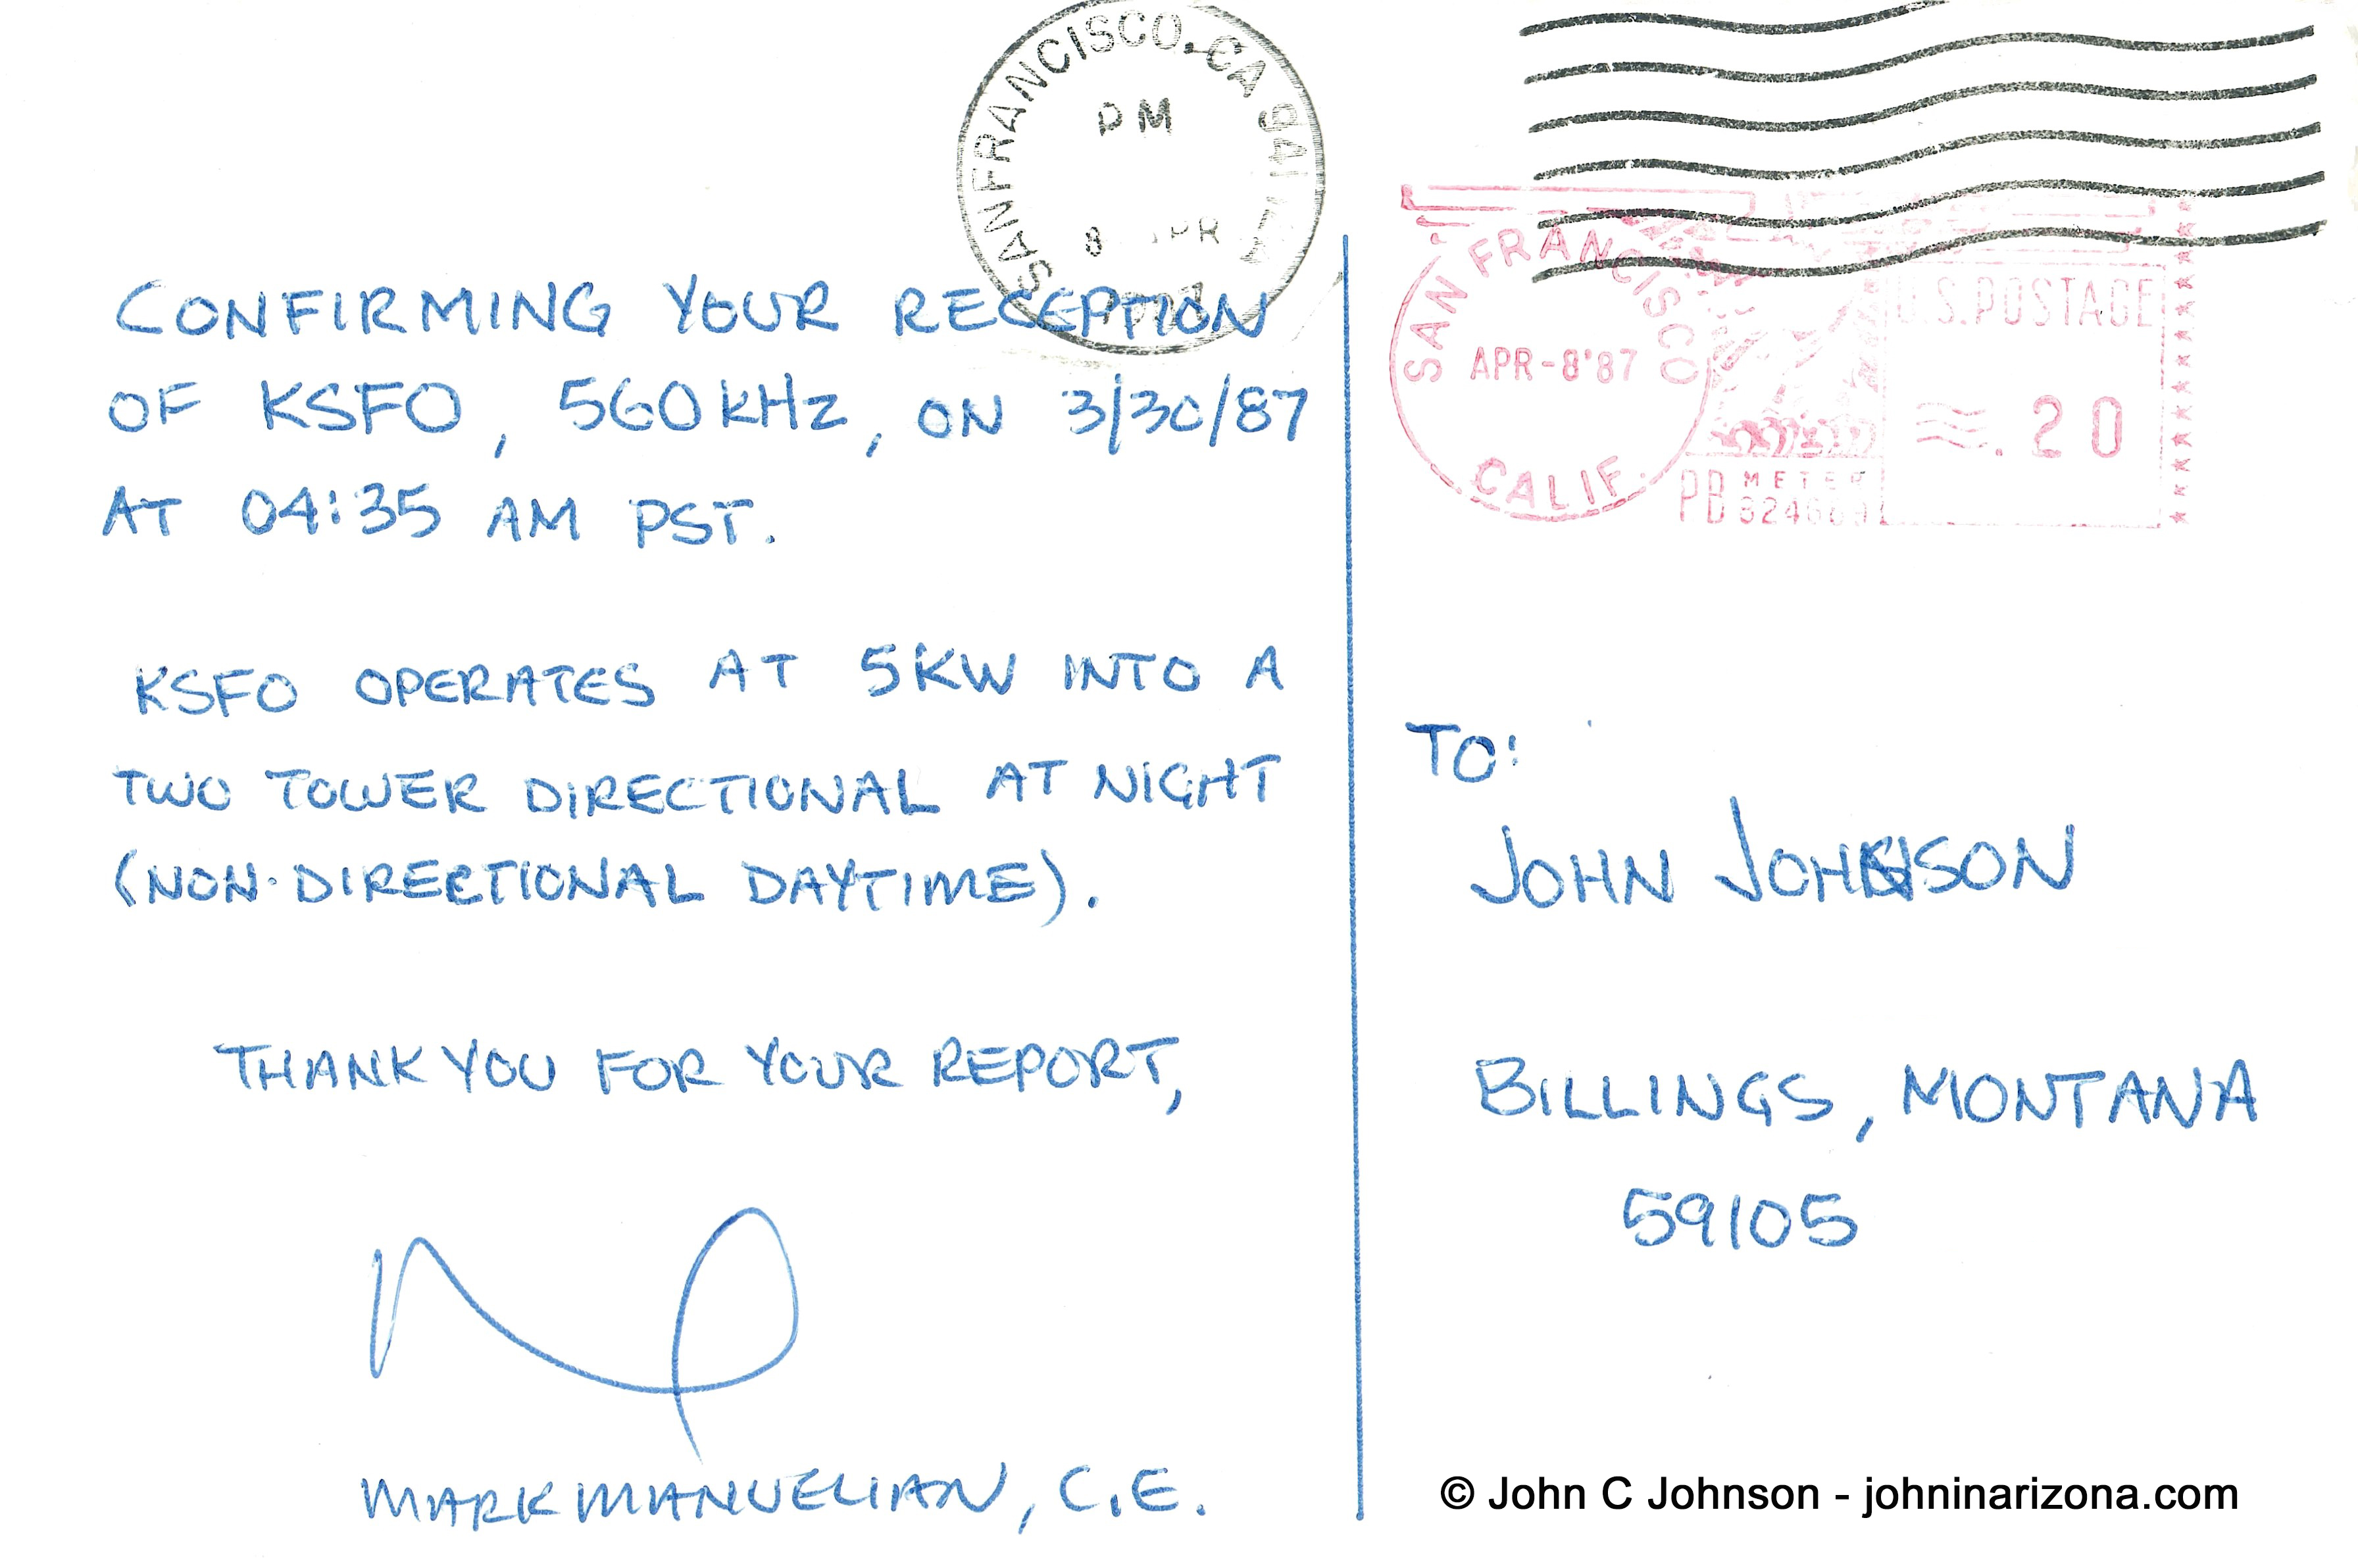 SAN FRANCISCO, CA 941
PM
8 APR
CONFIRMING YOUR RECEPTION
OF KSFO, 560 kHz, ON 3/30/87
AT 04:35 AM PST.
KSFO OPERATES AT 5KW INTO A
TWO TOWER DIRECTIONAL AT NIGHT
(NON-DIRECTIONAL DAYTIME).
THANK YOU FOR YOUR REPORT,
MARK MANUELIAN, C.E.
SAN FRANCISCO
APR-8'87
CALIF.
U.S.POSTAGE
.20
PB METER
TO:
JOHN JOHNSON
BILLINGS, MONTANA
59105
© John C Johnson - johninarizona.com